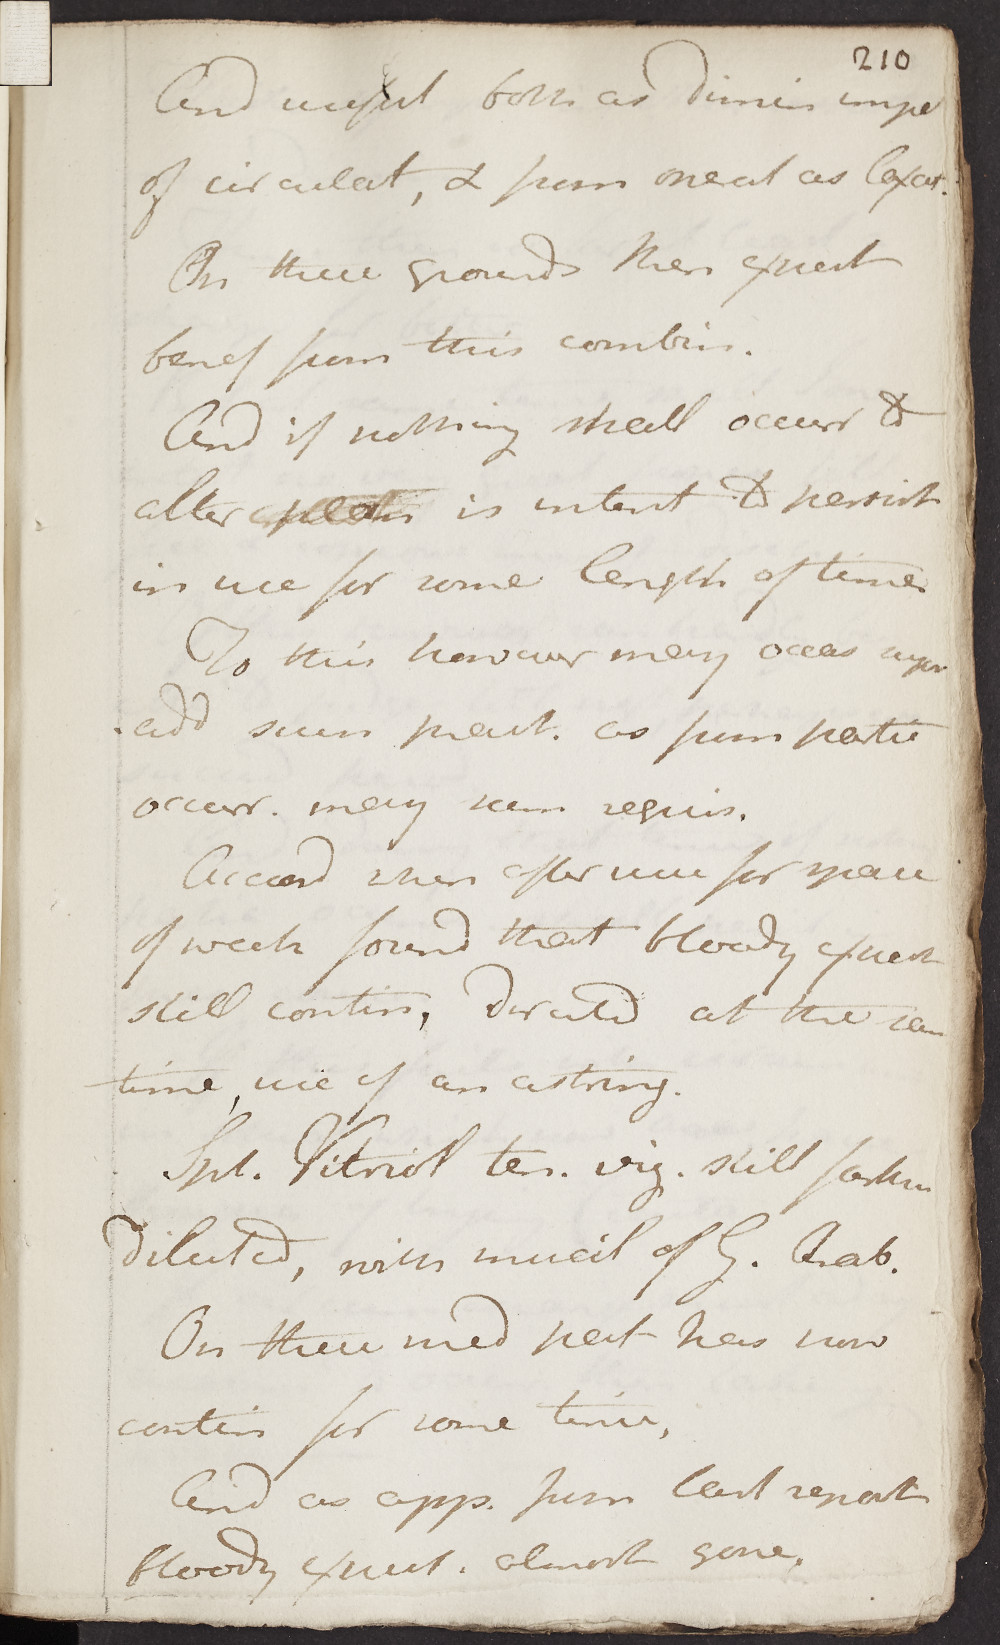 210
And useful both as dimin impet
of circulat, & from neat as laxat.
On these grounds then expect
benef from this combin.
And if nothing shall occurr to
alter is intent to persist
in use for some length of time
To this however may occas
add such pract. as from partic
occurr. may seem requis.
Accord when after use for space
of week found that bloody expect
still contin, directed at the same
time, use of an astring.
Spt. Vitriol ten. viz. still farther
diluted, with mucil of G. Arab.
On these med pat has now
contin for some time,
And as app. from last report
bloody expect. almost gone.